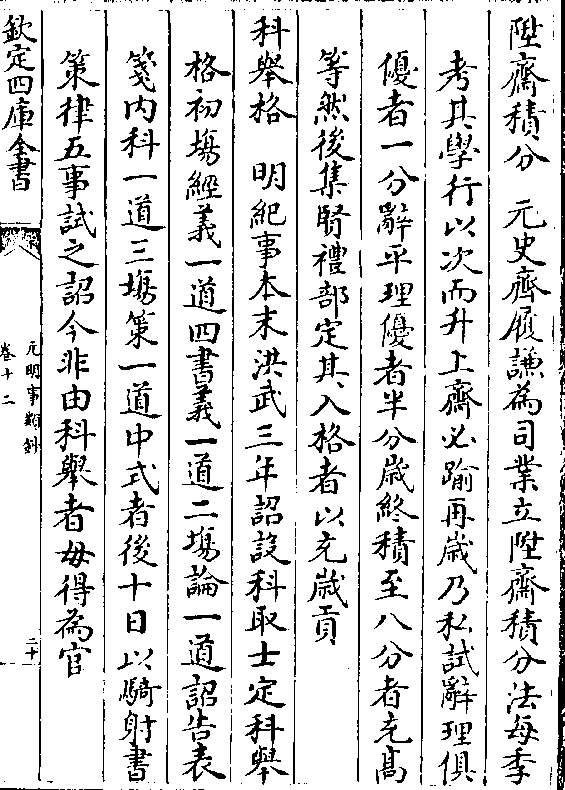 陞齋積分　元史齊履謙為司業立陞齋積分法每季
考其學行以次而升上齋必踰再歲乃私試辭理俱
優者一分辭平理優者半分歲終積至八分者充髙
等然後集賢禮部定其入格者以充歲貢
科舉格　明紀事本末洪武三年詔設科取士定科舉
格初塲經義一道四書義一道二塲論一道詔告表
箋内科一道三塲策一道中式者後十日以騎射書
策律五事試之詔今非由科舉者毋得為官
欽定四庫全書
元明事類鈔
卷十二
二十